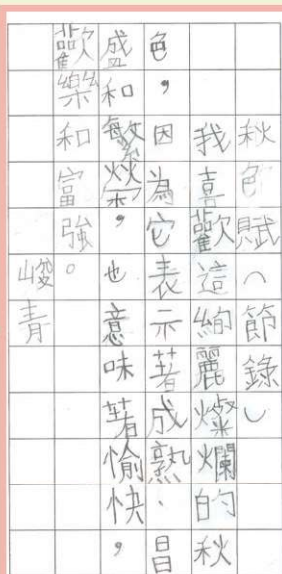 秋色賦（節錄）
我喜歡這絢麗燦爛的秋
色，因為它表示著成熟、昌
盛和繁榮，也意味著愉快，
歡樂和富強。
峻青